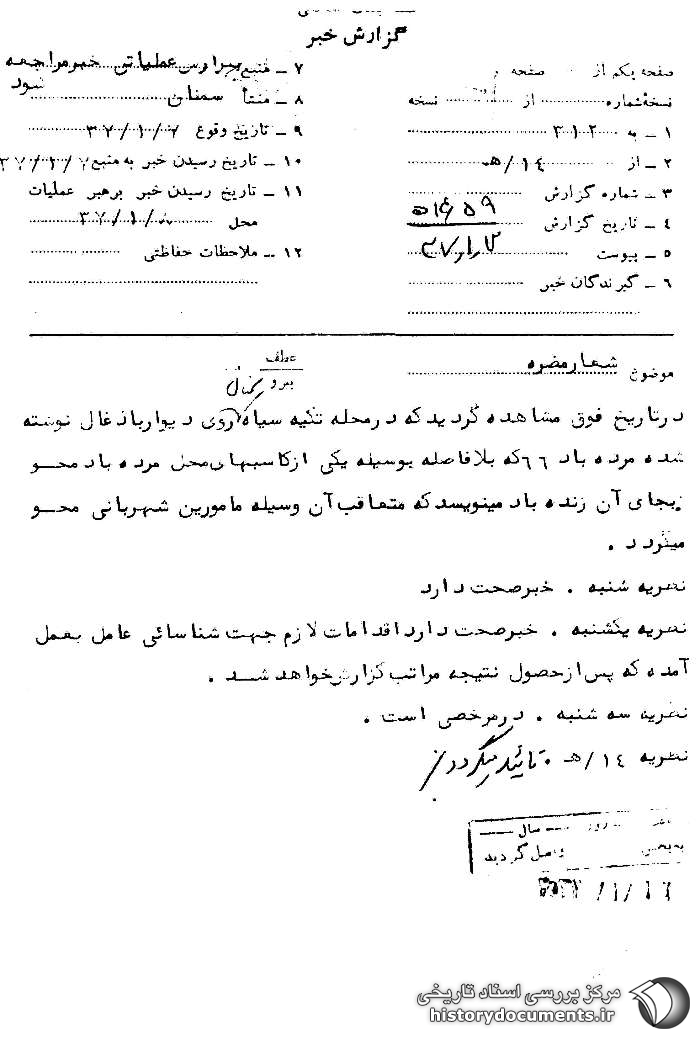 گزارش خبر
صفحه یکم از صفحه
نسخه شماره از نسخه
۱ ـ به ۳۱۲
۲ ـ از ۱۴/هـ
۳ ـ شماره گزارش
۴ ـ تاریخ گزارش
۵ ـ پیوست
۶ ـ گیرندگان خبر
۷ ـ منبع عملیاتی خبر مراجعه شود
۸ ـ منشأ سمنان
۹ ـ تاریخ وقوع ۳۷/۱/۷
۱۰ ـ تاریخ رسیدن خبر به منبع ۳۷/۱/۷
۱۱ ـ تاریخ رسیدن خبر برهبر عملیات
محل ۳۷/۱/۸
۱۲ ـ ملاحظات حفاظتی
موضوع شعار مضره
عطف
پیرو
درتاریخ فوق مشاهده گردید که درمحله تکیه سیاه روی دیوار با ذغال نوشته
شده مرده باد ۶۶ که بلافاصله بوسیله یکی ازکاسبهای محل مرده باد محو
بجای آن زنده باد مینویسد که متعاقب آن وسیله مامورین شهربانی محو
میگردد .
نظریه شنبه . خبرصحت دارد
نظریه یکشنبه . خبرصحت دارد اقدامات لازم جهت شناسائی عامل بعمل
آمده که پس ازحصول نتیجه مراتب گزارش خواهد شد .
نظریه سه شنبه . درمرخصی است .
نظریه ۱۴/هـ . تائید میگردد
روز سال
به بخش واصل گردید
مرکز بررسی اسناد تاریخی
historydocuments.ir